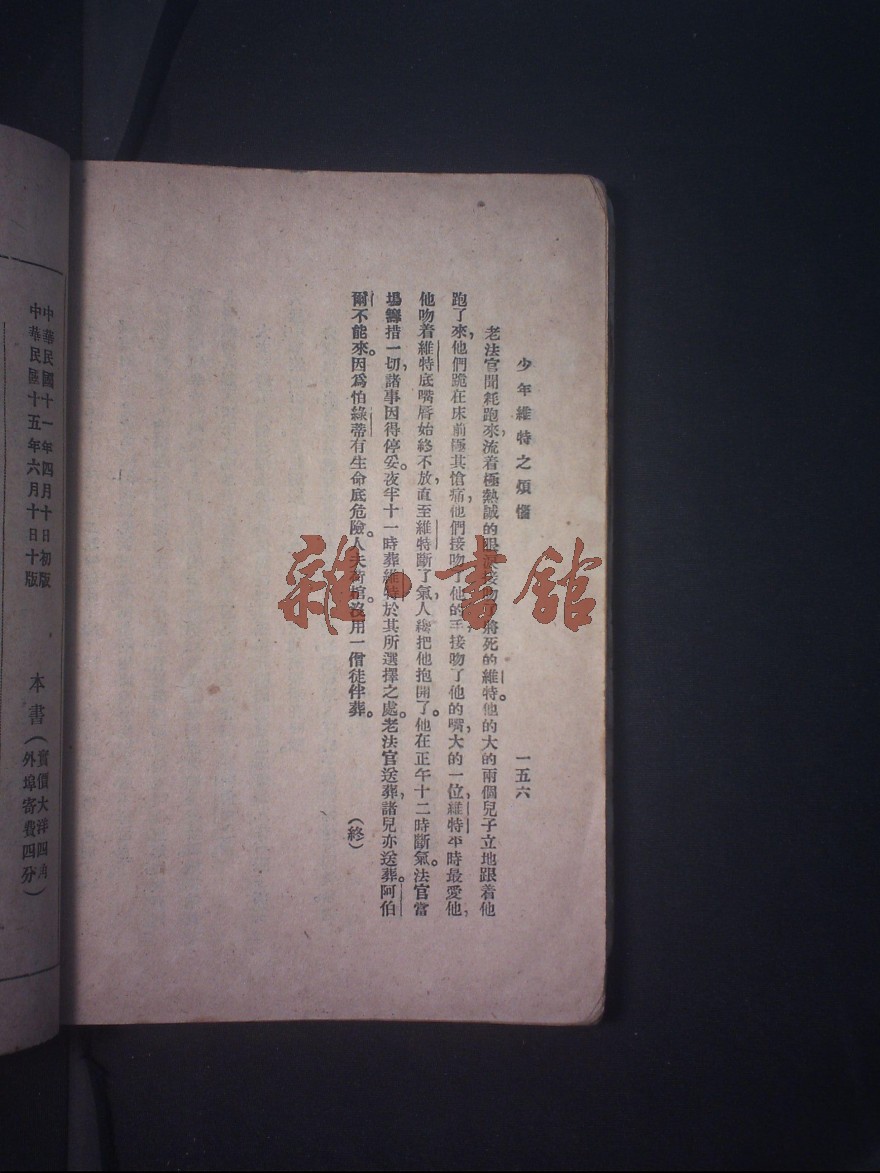 少年維特之煩惱
一五六
老法官聞耗跑來，流着極熱誠的眼淚接吻了將死的維特。他的大的兩個兒子立地跟着他
跑了來，他們跪在床前極其愴痛，他們接吻了他的手，接吻了他的嘴，大的一位，維特平時最愛他，
他吻着維特底嘴唇始終不放，直至維特斷了氣，人纔把他抱開了。他在正午十二時斷氣。法官當
場籌措一切，諸事因得停妥。夜半十一時葬維特於其所選擇之處。老法官送葬，諸兒亦送葬。阿伯
爾不能來。因爲怕綠蒂有生命底危險。人夫荷棺。沒用一僧徒伴葬。
（終）
雜·書館
中華民國十一年四月十日初版
中華民國十五年六月十日十版
本書（實價大洋四角
外埠寄費四分）